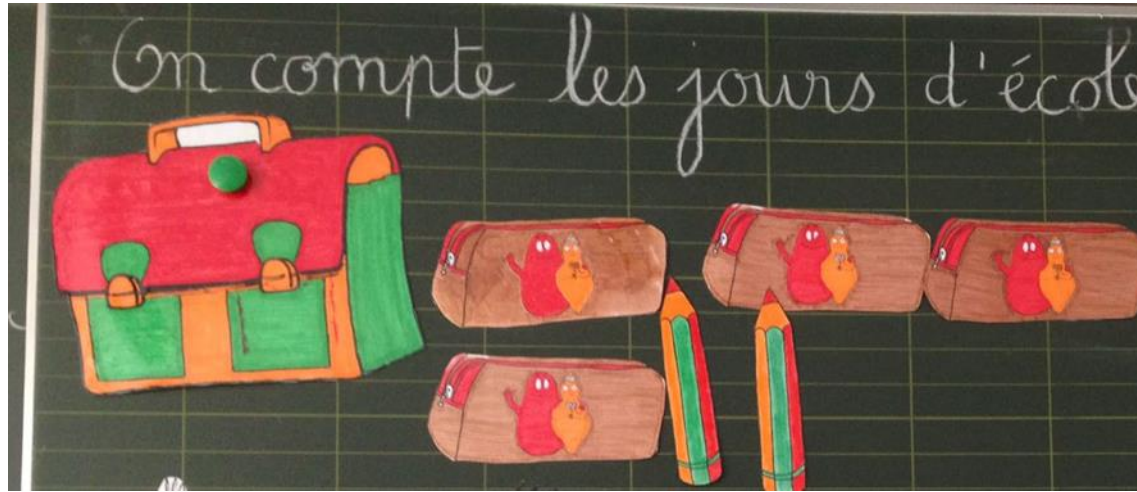 On compte les jours d'école